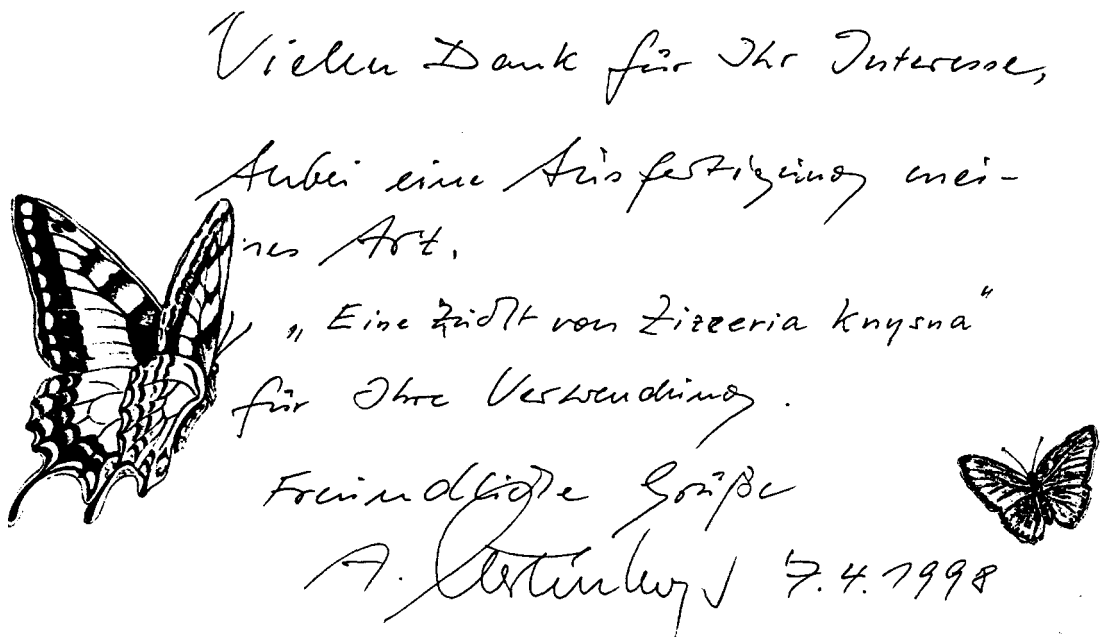 Vielen Dank für Ihr Interesse,
Anbei eine Ausfertigung mei-
nes Art.
„Eine Zucht von Zizeeria knysna“
für Ihre Verwendung.
Freundliche Grüße
A. 7.4.1998